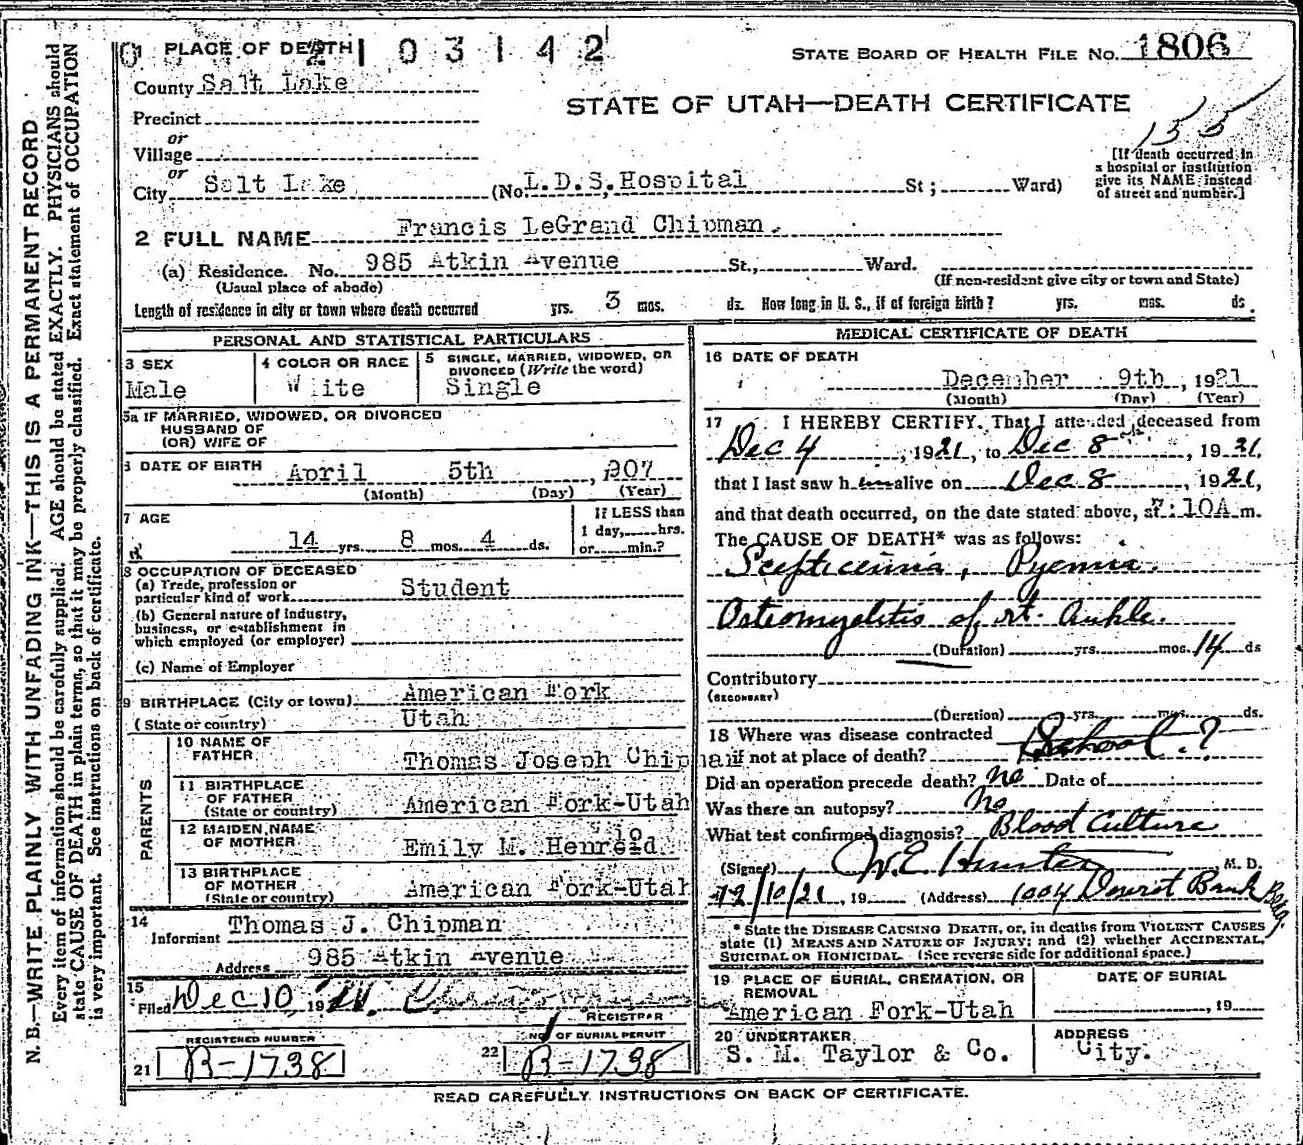 PLACE OF DEATH 2103142
STATE BOARD OF HEALTH FILE NO. 1806
County Salt Lake
STATE OF UTAH—DEATH CERTIFICATE
155
Precinct
or
Village
or
City Salt Lake (No. L.D.S. Hospital St; Ward)
[If death occurred in
a hospital or institution
give its NAME instead
of street and number.]
2 FULL NAME Francis LeGrand Chipman.
(a) Residence. No. 985 Atkin Avenue St., Ward.
(Usual place of abode) (If non-resident give city or town and State)
Length of residence in city or town where death occurred yrs. 3 mos. ds. How long in U. S., if of foreign birth? yrs. mos. ds.
PERSONAL AND STATISTICAL PARTICULARS
3 SEX
Male
4 COLOR OR RACE
W ite
5 SINGLE, MARRIED, WIDOWED, OR
DIVORCED (Write the word)
Single
5a IF MARRIED, WIDOWED, OR DIVORCED
HUSBAND OF
(OR) WIFE OF
6 DATE OF BIRTH April 5th, 1907
(Month) (Day) (Year)
7 AGE
14 yrs. 8 mos. 4 ds.
If LESS than
1 day, hrs.
or min.?
8 OCCUPATION OF DECEASED
(a) Trade, profession or
particular kind of work Student
(b) General nature of industry,
business, or establishment in
which employed (or employer)
(c) Name of Employer
9 BIRTHPLACE (City or town) American Fork
(State or country) Utah
PARENTS
10 NAME OF
FATHER Thomas Joseph Chipman
11 BIRTHPLACE
OF FATHER
(State or country) American Fork-Utah
12 MAIDEN NAME
OF MOTHER Emily M. Henroid.
13 BIRTHPLACE
OF MOTHER
(State or country) American Fork-Utah
14
Informant Thomas J. Chipman
Address 985 Atkin Avenue
15
Filed Dec 10, 19
REGISTRAR
REGISTERED NUMBER
21 B-1738
NO. OF BURIAL PERMIT
22 B-1738
MEDICAL CERTIFICATE OF DEATH
16 DATE OF DEATH
December 9th, 1921
(Month) (Day) (Year)
17 I HEREBY CERTIFY, That I attended deceased from
Dec 4, 1921, to Dec 8, 1921,
that I last saw him alive on Dec 8, 1921,
and that death occurred, on the date stated above, at 7:10A m.
The CAUSE OF DEATH* was as follows:
Scepticemia, Pyemia.
Osteomyelitis of rt. Ankle.
(Duration) yrs. mos. 14 ds
Contributory
(SECONDARY)
(Duration) yrs. mos. ds.
18 Where was disease contracted
if not at place of death? School.?
Did an operation precede death? no Date of
Was there an autopsy? No
What test confirmed diagnosis? Blood Culture
(Signed) W.E. Hunter M. D.
12/10/21, 19 (Address) 1004 Deseret Bank Bldg.
* State the DISEASE CAUSING DEATH, or, in deaths from VIOLENT CAUSES
state (1) MEANS AND NATURE OF INJURY; and (2) whether ACCIDENTAL,
SUICIDAL OR HOMICIDAL. (See reverse side for additional space.)
19 PLACE OF BURIAL, CREMATION, OR
REMOVAL
American Fork-Utah
DATE OF BURIAL
, 19
20 UNDERTAKER
S. M. Taylor & Co.
ADDRESS
City.
READ CAREFULLY INSTRUCTIONS ON BACK OF CERTIFICATE.
N. B.—WRITE PLAINLY WITH UNFADING INK—THIS IS A PERMANENT RECORD
Every item of information should be carefully supplied. AGE should be stated EXACTLY. PHYSICIANS should
state CAUSE OF DEATH in plain terms, so that it may be properly classified. Exact statement of OCCUPATION
is very important. See instructions on back of certificate.